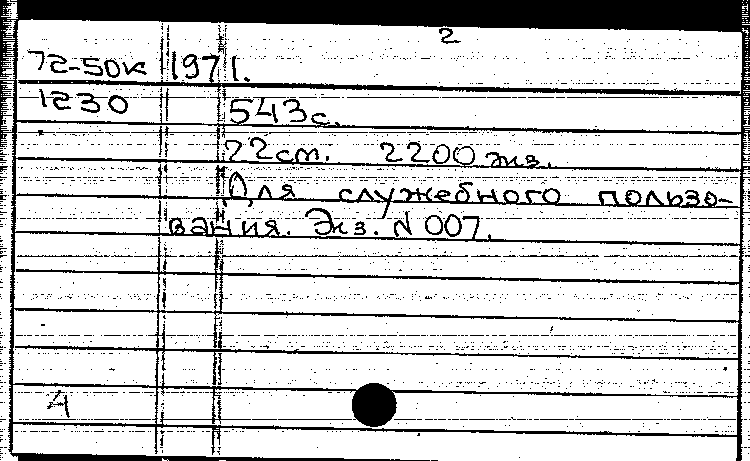 2
72-50к 1971.
1230 543с.
22см. 2200 экз.
Для служебного пользо-
вания. Экз. N 007.
А